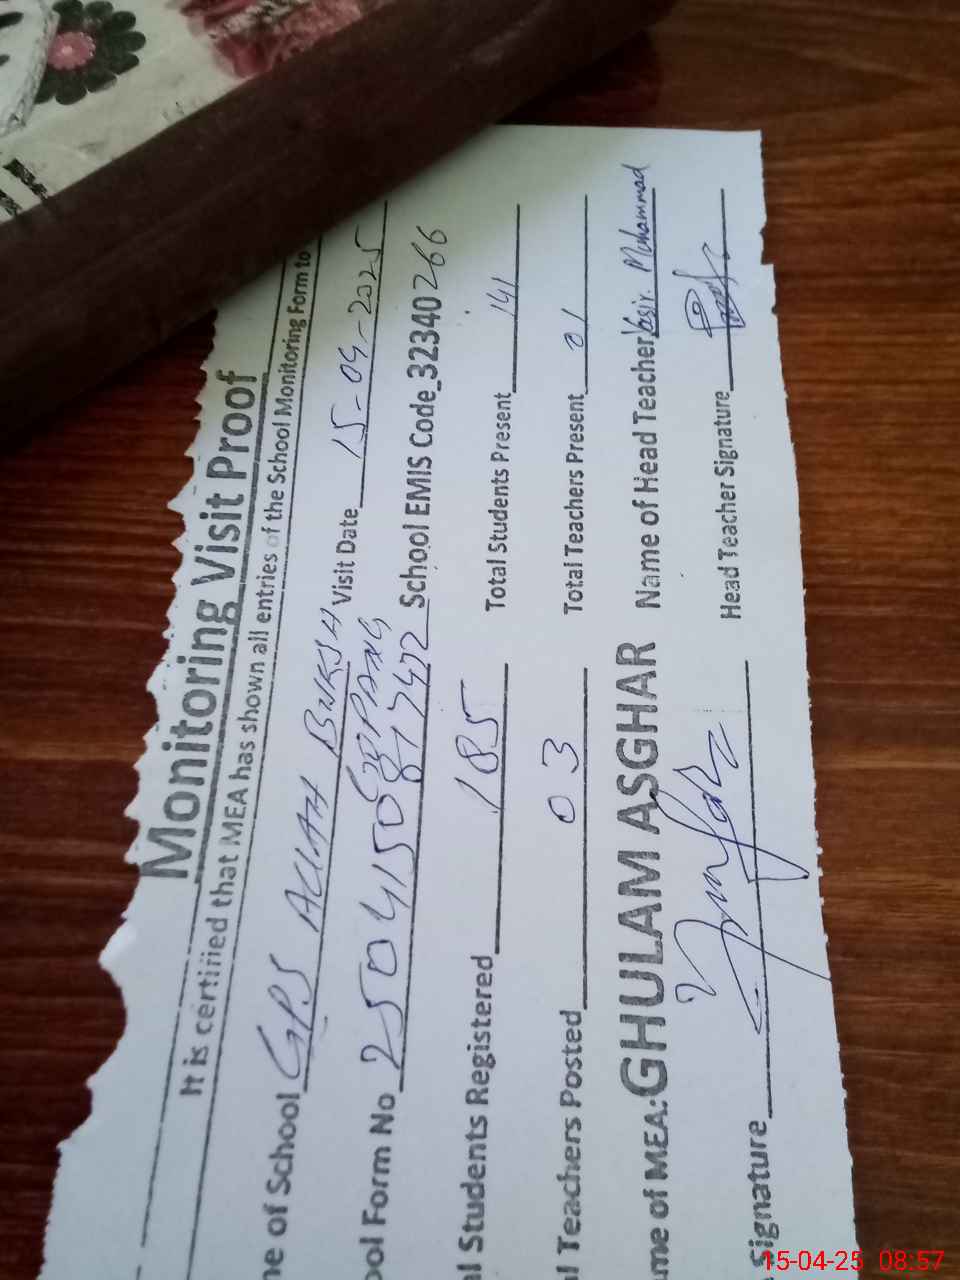 Monitoring Visit Proof
It is certified that MEA has shown all entries of the School Monitoring Form to
me of School GPS ALLAH BUKSH GOPANG Visit Date 15-04-2025
ool Form No 2504150817472 School EMIS Code 32340266
al Students Registered 185 Total Students Present 141
al Teachers Posted 03 Total Teachers Present 01
ame of MEA: GHULAM ASGHAR Name of Head Teacher Yasir Muhammad
Signature Head Teacher Signature
15-04-25 08:57